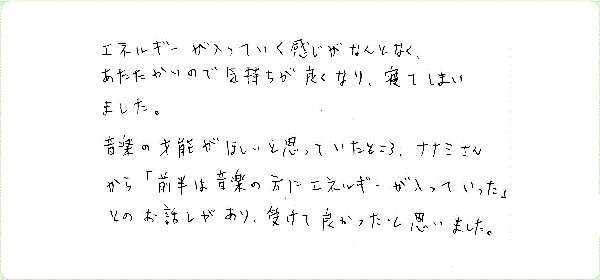 エネルギーが入っていく感じがなんとなく、
あたたかいので気持ちが良くなり、寝てしまい
ました。
音楽の才能がほしいと思っていたところ、ナナミさん
から「前半は音楽の方にエネルギーが入っていった」
とのお話しがあり、受けて良かったと思いました。